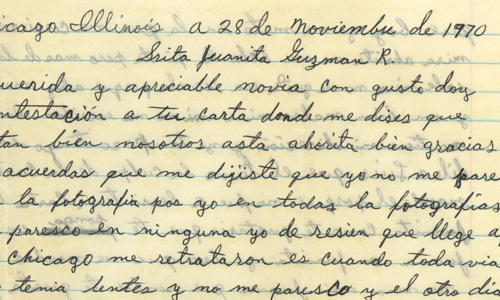 icago Illinois a 28 de Noviembre de 1970
Srita Juanita Guzman R.
uerida y apreciable novia con gusto doy
ntestación a tu carta donde me dises que
tan bien nosotros asta ahorita bien gracias
acuerdas que me dijiste que yo no me pare
la fotografia pos yo en todas la fotografías
paresco en ninguna yo de resien que llege a
chicago me retrataron es cuando toda via
tenia lentes y no me paresco y el otro dia